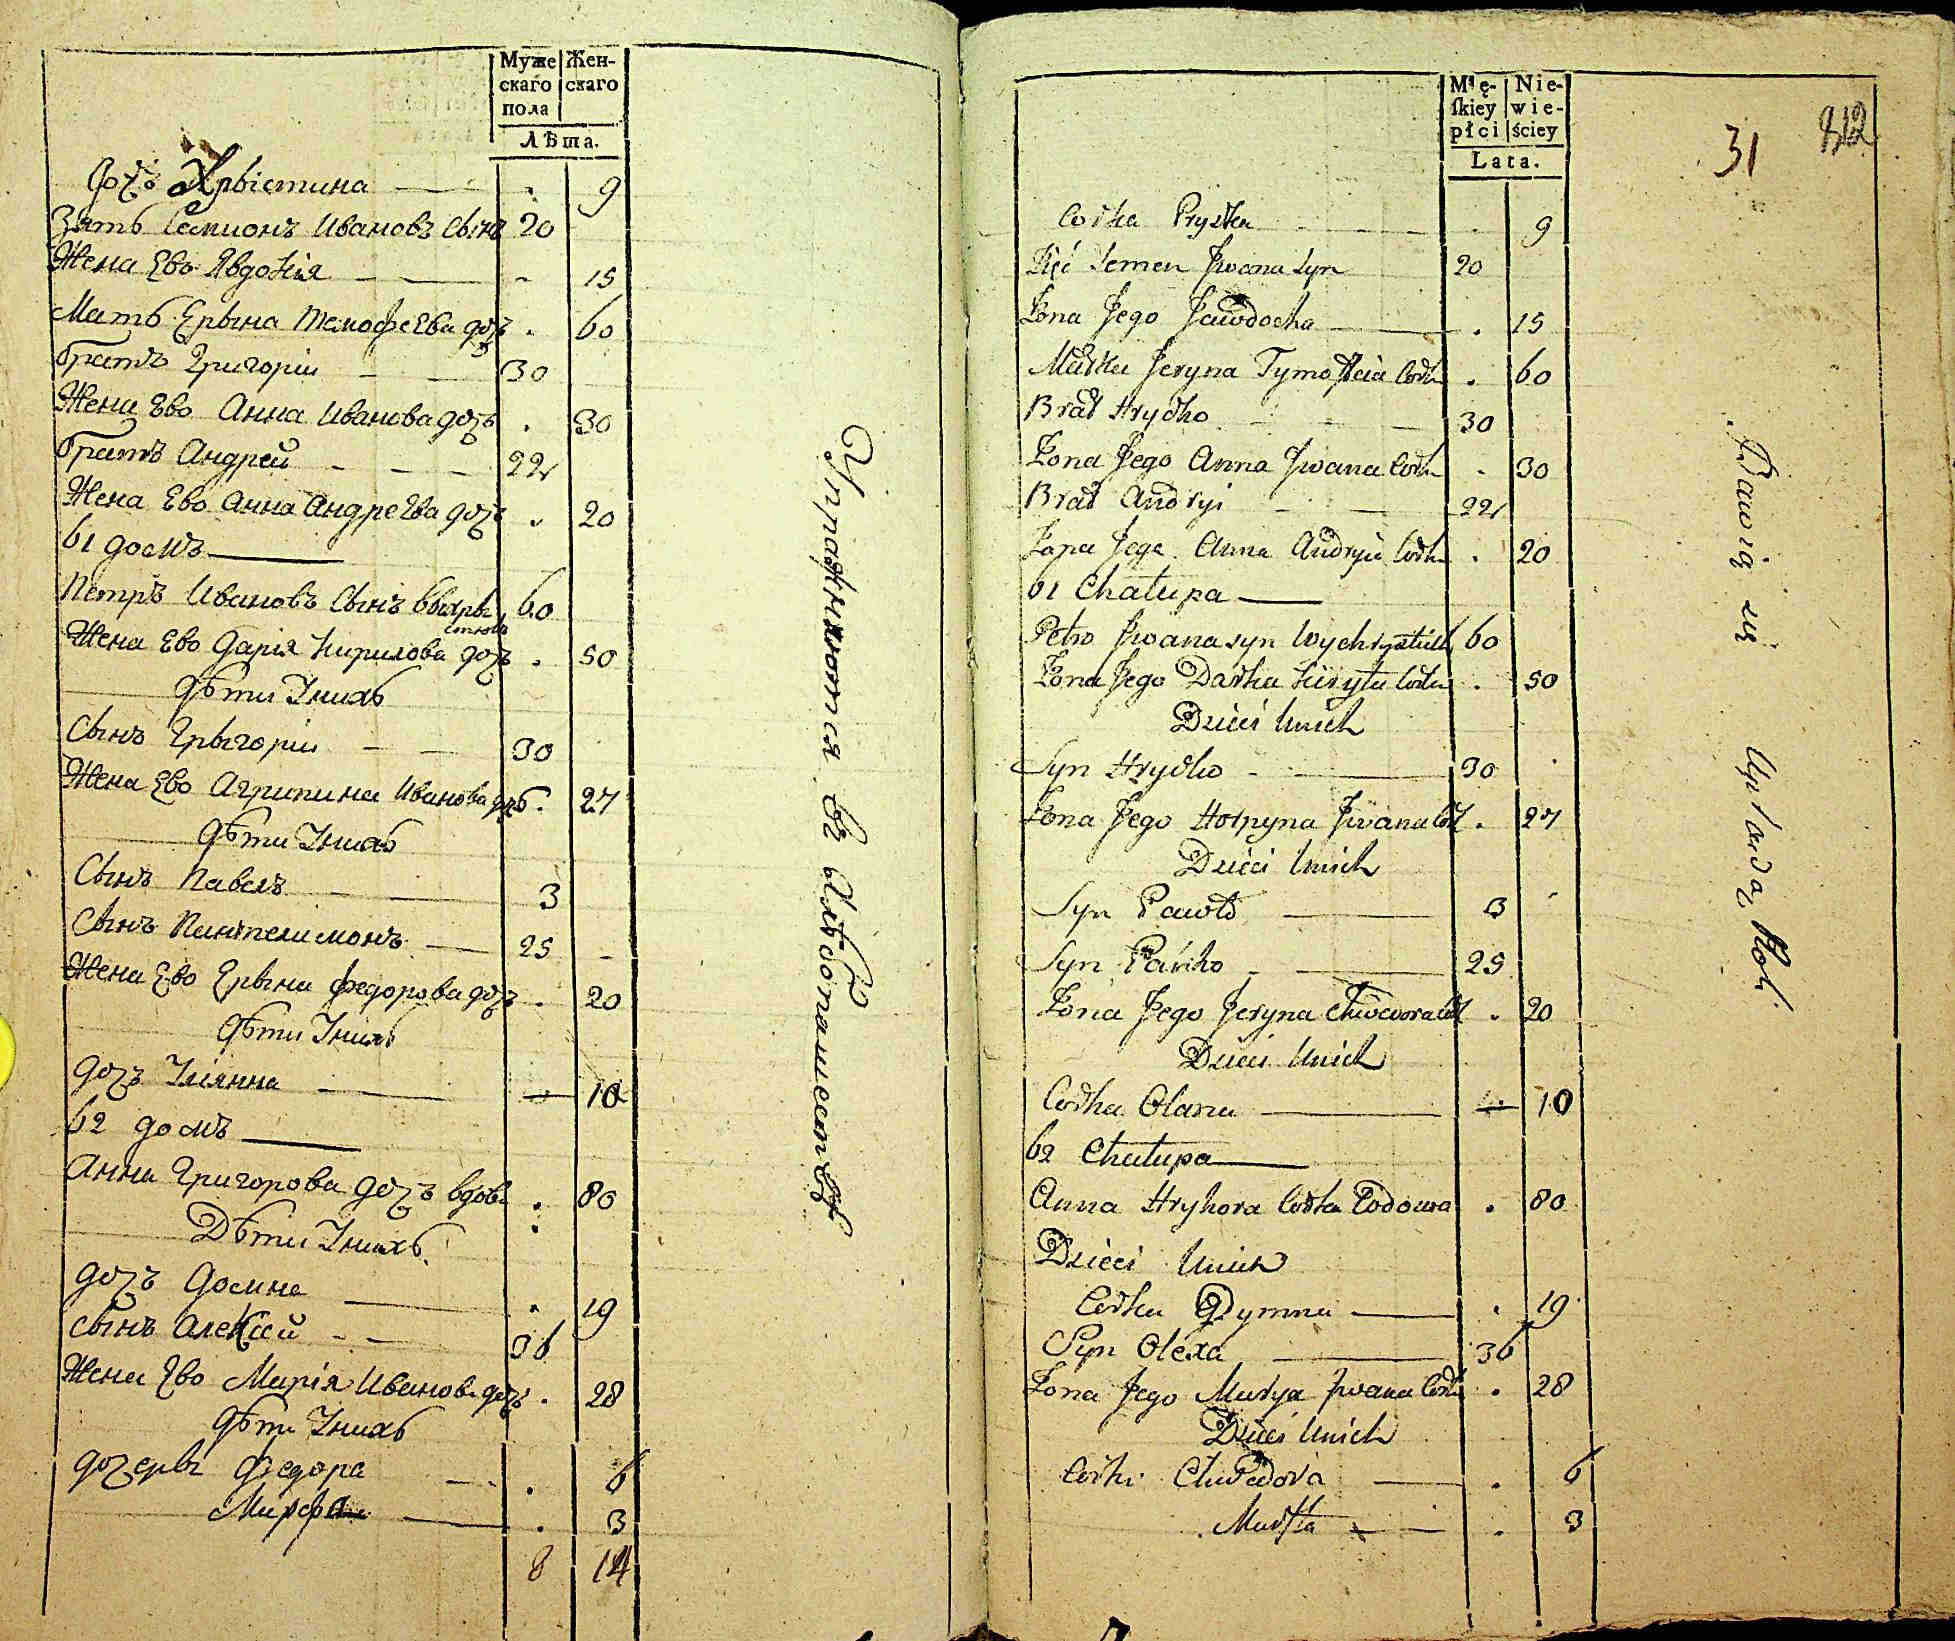 Муже Жен-
скаго скаго
пола
Лѣта.
дочь Хрыстина — . 9
Зять Семионъ Ивановъ Сынъ 20
Жена Ево Явдокія — - 15
Мать Ерына Темофеѣва дочь . 60
братъ Григоріи — 30
Жена Ево Анна Иванова дочь . 30
братъ Андрей - - - 22
Жена Ево Анна Андреѣва дочь . 20
61 домъ —
Петръ Ивановъ Сынъ 60
Жена Ево Дарія Кирилова дочь . 50
Дѣти Унихъ
Сынъ Грыгоріи — 30
Жена Ево Агрипина Иванова дочь . 27
Дѣти Унихъ
Сынъ Павелъ 3
Сынъ Пантелимонъ — 25 -
Жена Ево Ерына Федорова дочь . 20
Дѣти Унихъ
дочъ Улiянна — 10
62 домъ —
Анна Григорова дочъ вдова . 80
Дѣти Унихъ
дочъ Домна — . 19
Сынъ Алексѣй - - 36
Жена Ево Марія Иванова дочь . 28
Дѣти Унихъ
дочеры Федора — . 6
Марфа — . 3
8 14
Упражняются въ хлѣбопашествѣ
Mę- Nie-
skiey wie-
płci ściey
Lata.
31
812
Corka Pryska — . 9
Zięć Semen Jwana Syn 20
Zona Jego Jawdocha — . 15
Matka Jeryna Tymofieia Corka . 60
Brat Hryćko — 30
Zona Jego Anna Jwana Corka . 30
Brat Andryi — 22
Zona Jego Anna Andryia Corka . 20
61 Chałupa —
Petro Jwana syn Wychrystiuk 60
Zona Jego Darka Kiryła Corka . 50
Dzieci Unich
Syn Hryćko — 30
Zona Jego Horpyna Jwana Cor . 27
Dzieci Unich
Syn Pawło — 3
Syn Pańko — 25
Zona Jego Jeryna Chwedora Cor . 20
Dzieci Unich
Corka Olana — 10
62 Chałupa —
Anna Hryhora Corka Wdowa . 80
Dzieci Unich
Corka Dymna — . 19
Syn Olexa — 36
Zona Jego Marya Jwana Corka . 28
Dzieci Unich
Corki Chwedora — . 6
Marfta — . 3
Bawią się Uprawą Roli